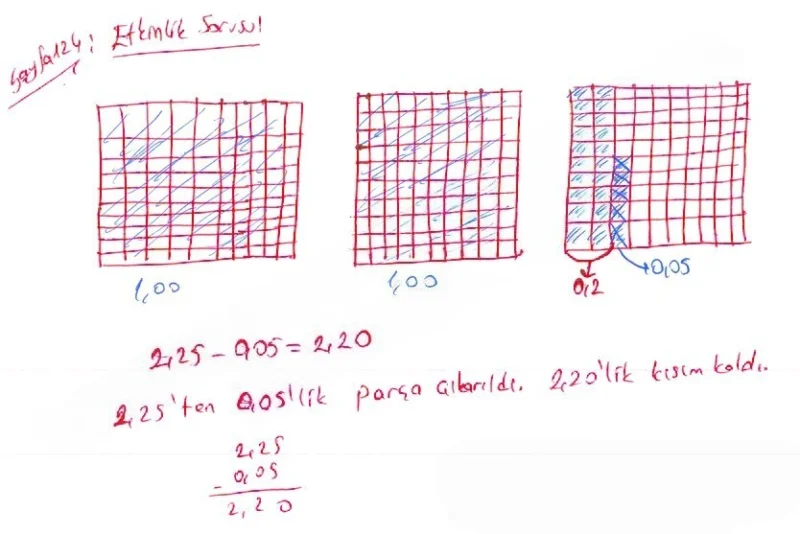 Sayfa124: Etkinlik Sorusu
1,00
1,00
0,2
0,05
2,25 - 0,05 = 2,20
2,25'ten 0,05'lik parça çıkarıldı. 2,20'lik kısım kaldı.
2,25
- 0,05
2,20